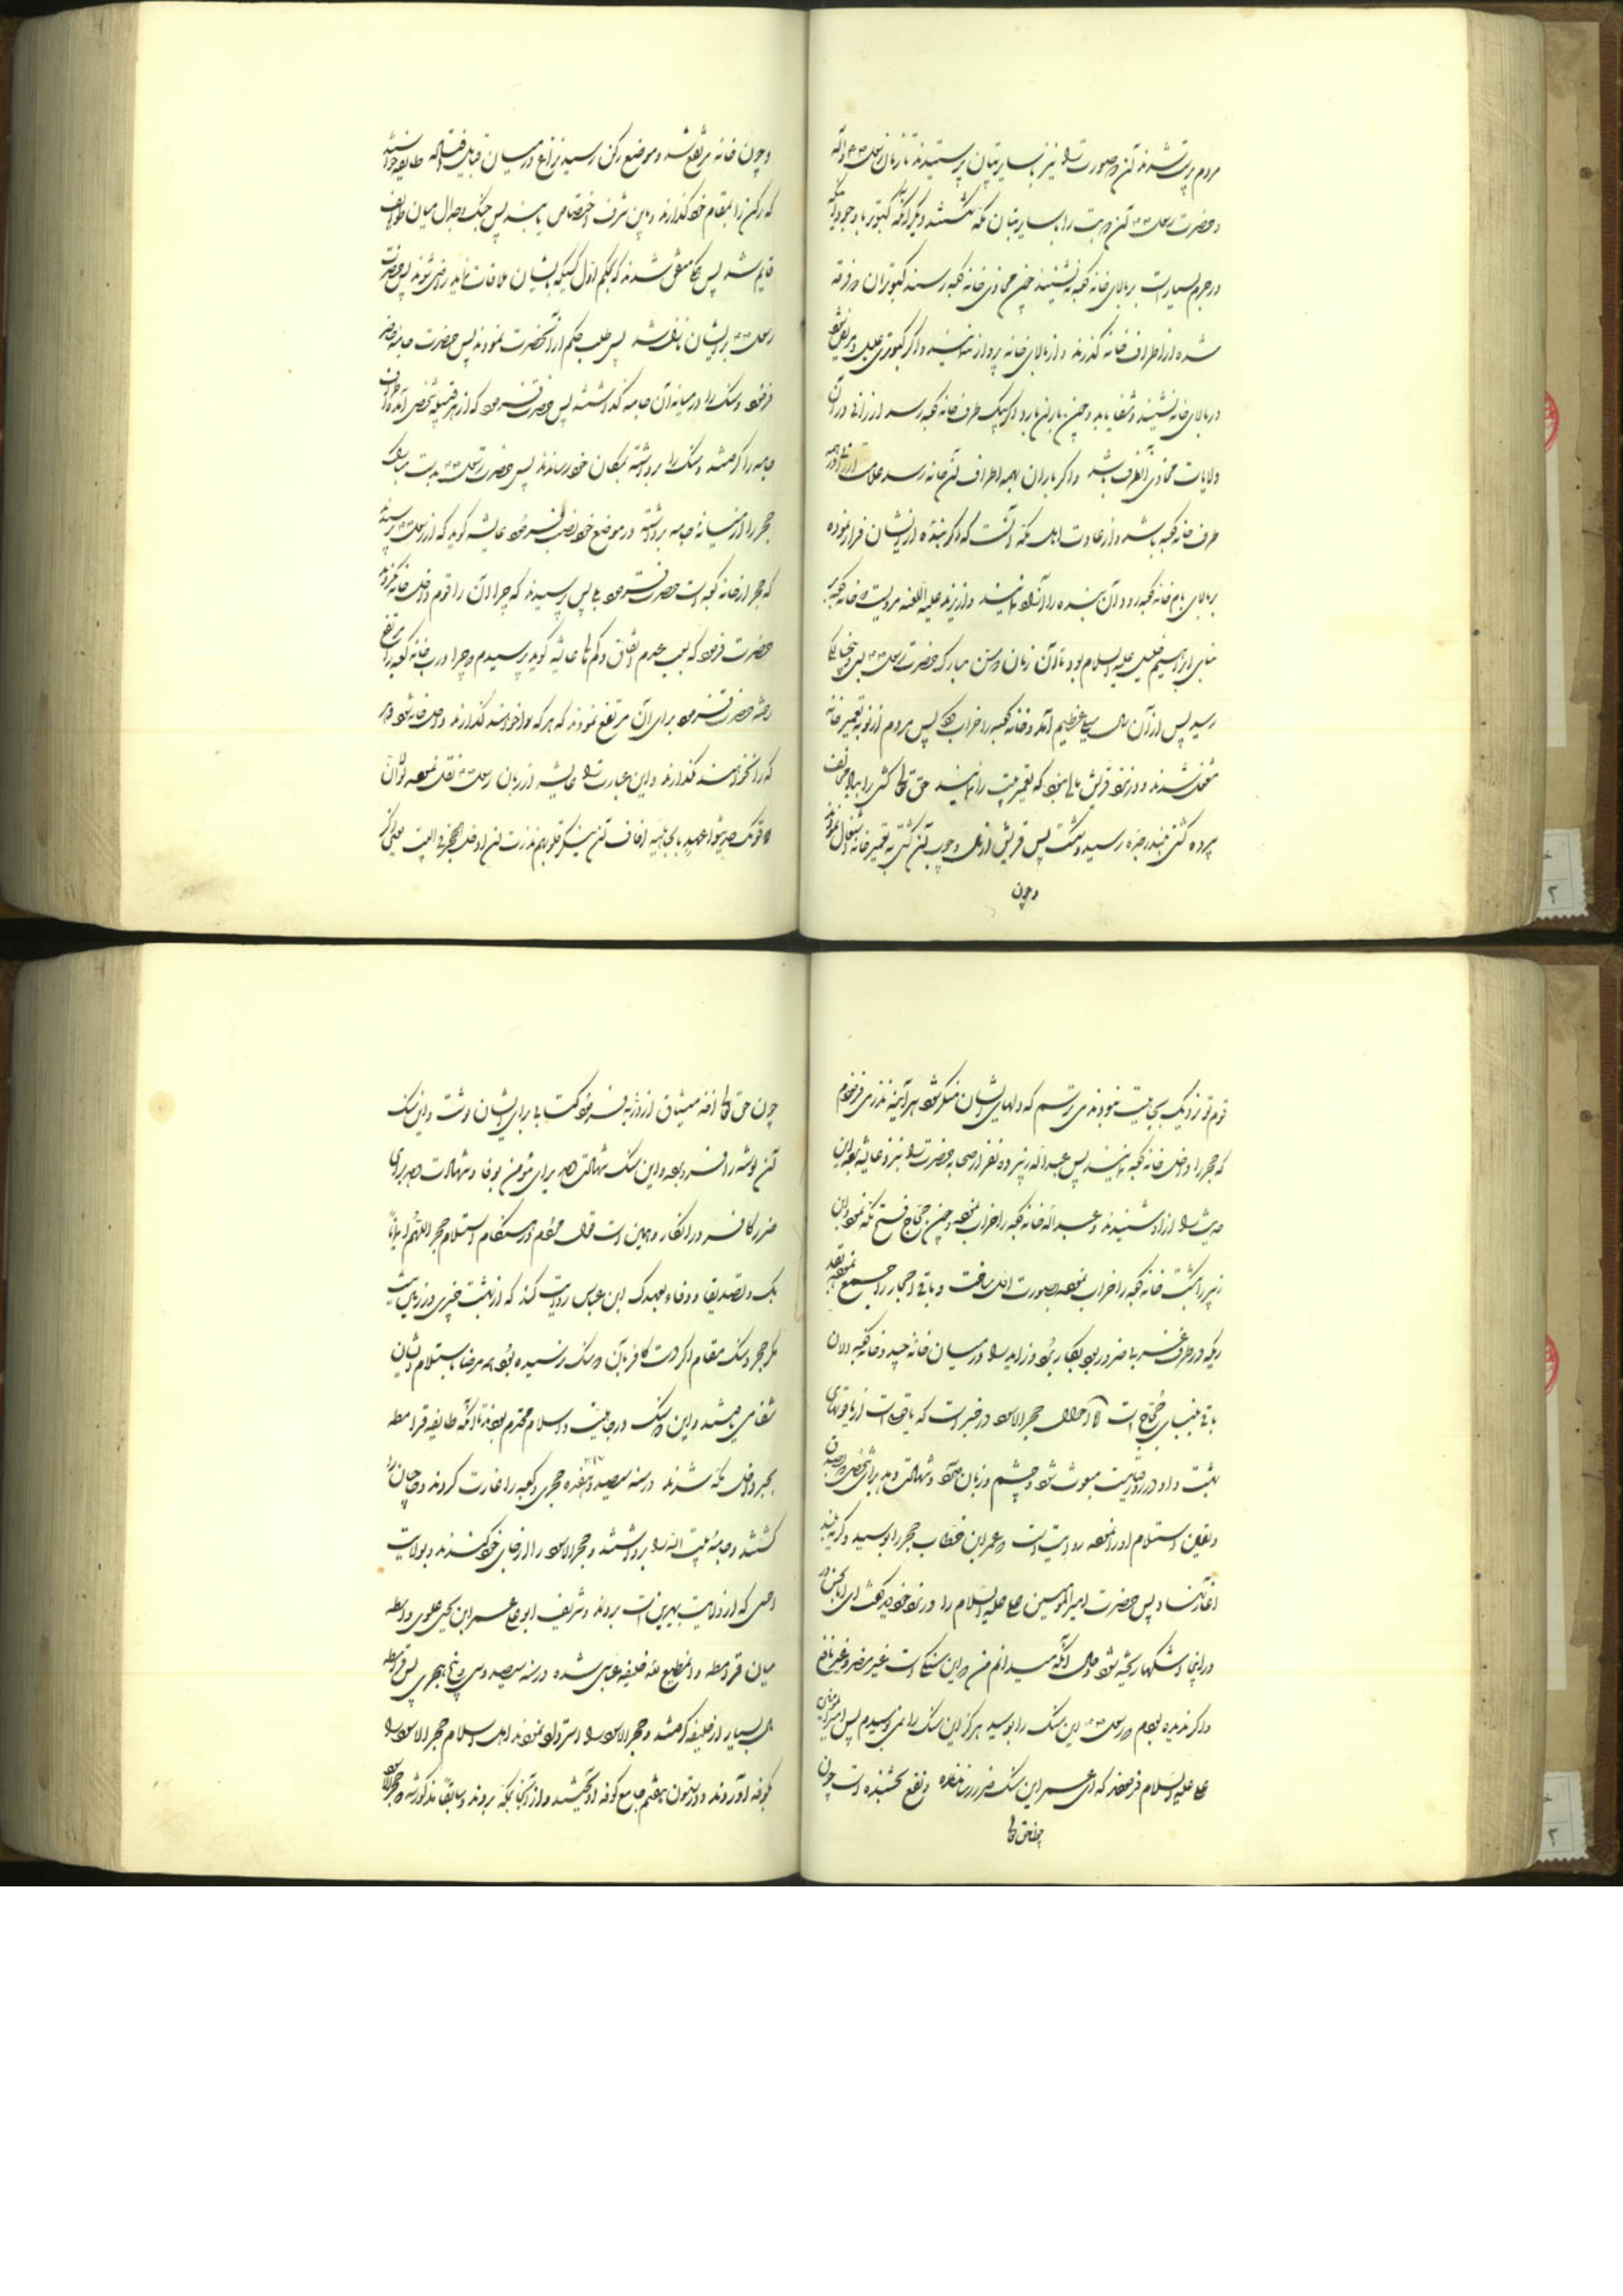 مردم بت پرست شدند آن دو صورت را نیز بسایر بتان پرستیدند تا زمان رسول
و حضرت رسول آن دو بت را با سایر بتان مکه شکستند دیگر آنکه کبوتر با وجود آنکه
در حرم بسیار است بر بالای خانه کعبه ننشینند چون محاذی خانه کعبه رسند کبوتران دو فرقه
شده از اطراف خانه گذرند و از بالای خانه پرواز ننمایند و اگر کبوتری علیل و مریض شود
در بالای خانه نشیند و شفا یابد و چون باران بارد اگر بیک طرف خانه کعبه رسد ارزانی در آن
ولایات محاذی آنطرف باشد و اگر باران بهمه اطراف آن خانه رسد علامت ارزانی در همه
طرف خانه کعبه باشد و از عادت اهل مکه آنست که اگر بنده از ایشان فرار نموده
بر بالای بام خانه کعبه رود آن بنده را آزاد نمایند و از یزید علیه اللعنه مرویست خانه کعبه
بنای ابراهیم خلیل علیه السلام بود تا آن زمان و سن مبارک حضرت رسول بسی و پنج سالگی
رسید پس از آن سال سیل عظیم آمد و خانه کعبه را خراب کرد پس مردم از نو به تعمیر خانه
مشغول شدند و در نزد قریش مالی نبود که تعمیر بیت را نمایند حق تعالی کشتی را بباد مخالف
برده کشتی ببندر جده رسید و شکست پس قریش از چوب آن کشتی به تعمیر خانه اشتغال نمودند
و چون
و چون خانه مرتفع شد و موضع رکن رسید نزاع در میان قبایل افتاد که هر طایفه خواستند
که رکن را بمقام خود گذارند و باین شرف اختصاص یابند پس جنگ و جدال میان طوایف
قایم شد پس همگی متفق شدند که بحکم اول کسیکه بایشان ملاقات نماید راضی شوند پس حضرت
رسول بر ایشان نازل شد پس طلب حکم از آنحضرت نمودند پس حضرت جامه حاضر
فرمود و سنگ را در میانه آن جامه گذاشتند پس حضرت فرمود که از هر قبیله شخصی آمده اطراف
جامه را گرفتند و سنگ را برداشته بمکان خود رساندند پس حضرت رسول بدست مبارک
حجر را از میانه جامه برداشته در موضع خود نصب فرمود عایشه گوید که از رسول پرسیدند
که حجر از خانه کعبه است حضرت فرمود بلی پس پرسیدند که چرا آن را قوم داخل خانه نکردند
حضرت فرمود که بسبب عدم اتفاق و کم مالی عایشه گوید پرسیدم و چرا درب خانه کعبه را مرتفع
حضرت فرمود برای آن مرتفع نمودند که هر که را خواستند گذارند داخل خانه شود و هر
که را نخواهند نگذارند و این عبارت را عایشه از زبان رسول نقل نموده لولا ان
قومک حدیثوا عهد بالجاهلیه اخاف ان ینکر قلوبهم نذرت ان ادخل الحجر فی البیت یعنی اگر
قوم تو نزدیک بجاهلیت نبودند می ترسم که دلهای ایشان منکر شود هر آینه نذر می فرمودم
که حجر را داخل خانه کعبه نمایند پس عبدالله زبیر ده نفر از صحابه حضرت را بنزد عایشه برد این
حدیث را از او شنیدند و عبدالله خانه کعبه را خراب نمود و چون حجاج فتح مکه نمود ابن
زبیر را کشت خانه کعبه را خراب نموده بصورت اول ساخت و باقی احجار را جمع نمود
باقی ببنای حجاج است اما احوال حجر الاسود در خبر است که یاقوتی است از یاقوتهای
بهشت و او در روز قیامت مبعوث شود و چشم و زبان دارد و شهادت دهد برای شخصی
استلام او را نموده روایتست عمر ابن خطاب حجر را بوسید و گریه بلند
آغاز نهاد پس حضرت امیرالمومنین علی علیه السلام را در نزد خود دید گفت ای ابالحسن در
اینجا اشکها ریخته شود و حال آنکه میدانم من این سنگی است غیر مضر و غیر نافع
و اگر ندیده بودم که رسول این سنگ را بوسید هرگز این سنگ را نمی بوسیدم پس امیرالمومنین
علی علیه السلام فرمودند که ای عمر این سنگ ضرر رساننده و نفع بخشنده است چون
چون حق تعالی
چون حق تعالی اخذ میثاق از ذریه فرمود کتابی برای ایشان نوشت و این سنگ
آن نوشته را فرو برد و این سنگ شهادت دهد برای مؤمن بوفا و شهادت دهد برای
ضرر کافر در انکار و همین است قول مردم در هنگام استلام حجر اللهم ایمانا
بک و تصدیقا و وفاء بعهدک ابن عباس روایت کند که از بهشت چیزی در زمین نیست
مگر حجر و سنگ مقام اگر دست کافر بآن دو سنگ نرسیده بود همه مرضا باستلام ایشان
شفا می یافتند و این دو سنگ در جاهلیت و اسلام محترم بودند تا آنکه طایفه قرامطه
بجبر داخل مکه شدند در سنه سیصد و هفده هجری و کعبه را غارت کردند و حاجیان را
کشتند و جامه بیت الله را برداشتند و حجر الاسود را از جای خود کندند و بولایت
احسی که از ولایت بحرین است بردند و شریف ابو علی عمر ابن یحیی علوی واسطه
میان قرامطه و المطیع لله خلیفه عباسی شده در سنه سیصد و سی و پنج هجری پس قرامطه
مال بسیار از خلیفه گرفتند و حجر الاسود را استرداد نمودند اهل اسلام حجر الاسود را
بکوفه آوردند و در ستون هفتم جامع کوفه آویختند و از آنجا بمکه بردند و سابقا مذکور شد حجر الاسود